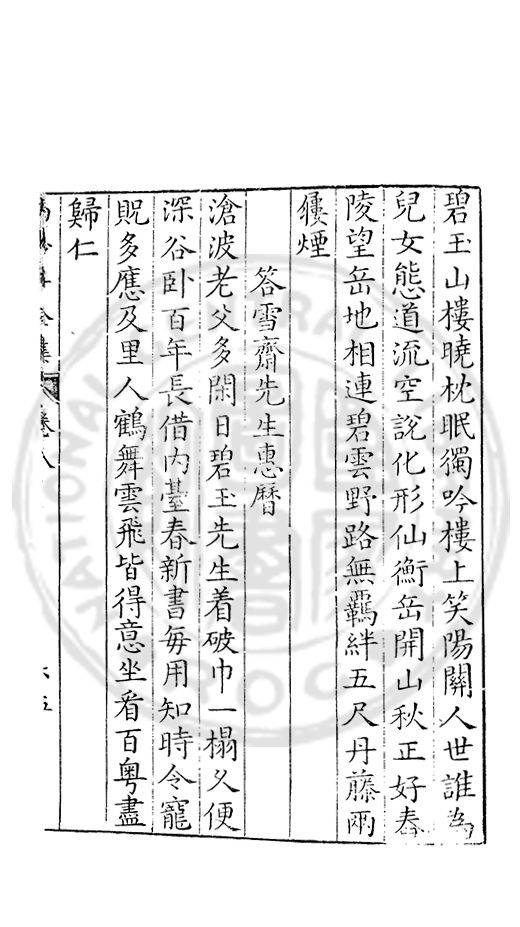 碧玉山樓曉枕眠獨吟樓上笑陽關人世誰為
兒女態道流空說化形仙衡岳開山秋正好春
陵望岳地相連碧雲野路無羈絆五尺丹藤兩
屨煙
答雪齋先生惠曆
滄波老父多閑日碧玉先生着破巾一榻久便
深谷卧百年長借內臺春新書每用知時令寵
貺多應及里人鶴舞雲飛皆得意坐看百粤盡
歸仁
卷八